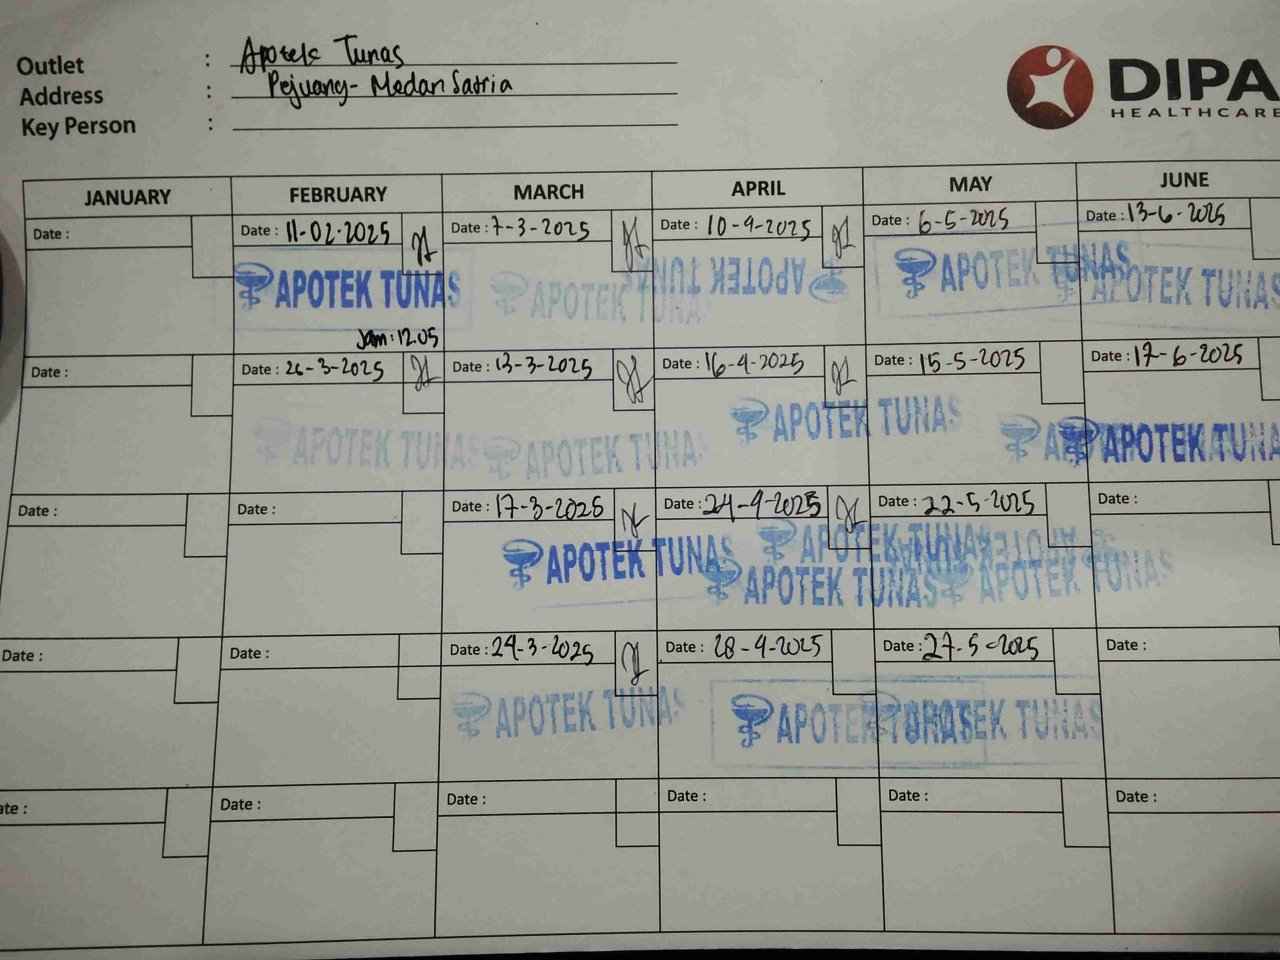 Outlet : Apotek Tunas
Address : Pejuang - Medan Satria
Key Person :
DIPA
HEALTHCARE
JANUARY FEBRUARY MARCH APRIL MAY JUNE
Date : Date : 11-02-2025 Date : 7-3-2025 Date : 10-4-2025 Date : 6-5-2025 Date : 13-6-2025
APOTEK TUNAS APOTEK TUNAS APOTEK TUNAS APOTEK TUNAS APOTEK TUNAS
Jam : 12.05
Date : Date : 26-3-2025 Date : 13-3-2025 Date : 16-4-2025 Date : 15-5-2025 Date : 17-6-2025
APOTEK TUNAS APOTEK TUNAS APOTEK TUNAS APOTEK TUNAS
Date : Date : Date : 17-3-2025 Date : 24-4-2025 Date : 22-5-2025 Date :
APOTEK TUNAS APOTEK TUNAS APOTEK TUNAS
APOTEK TUNAS APOTEK
Date : Date : Date : 24-3-2025 Date : 28-4-2025 Date : 27-5-2025 Date :
APOTEK TUNAS APOTEK TUNAS APOTEK TUNAS
ate : Date : Date : Date : Date : Date :